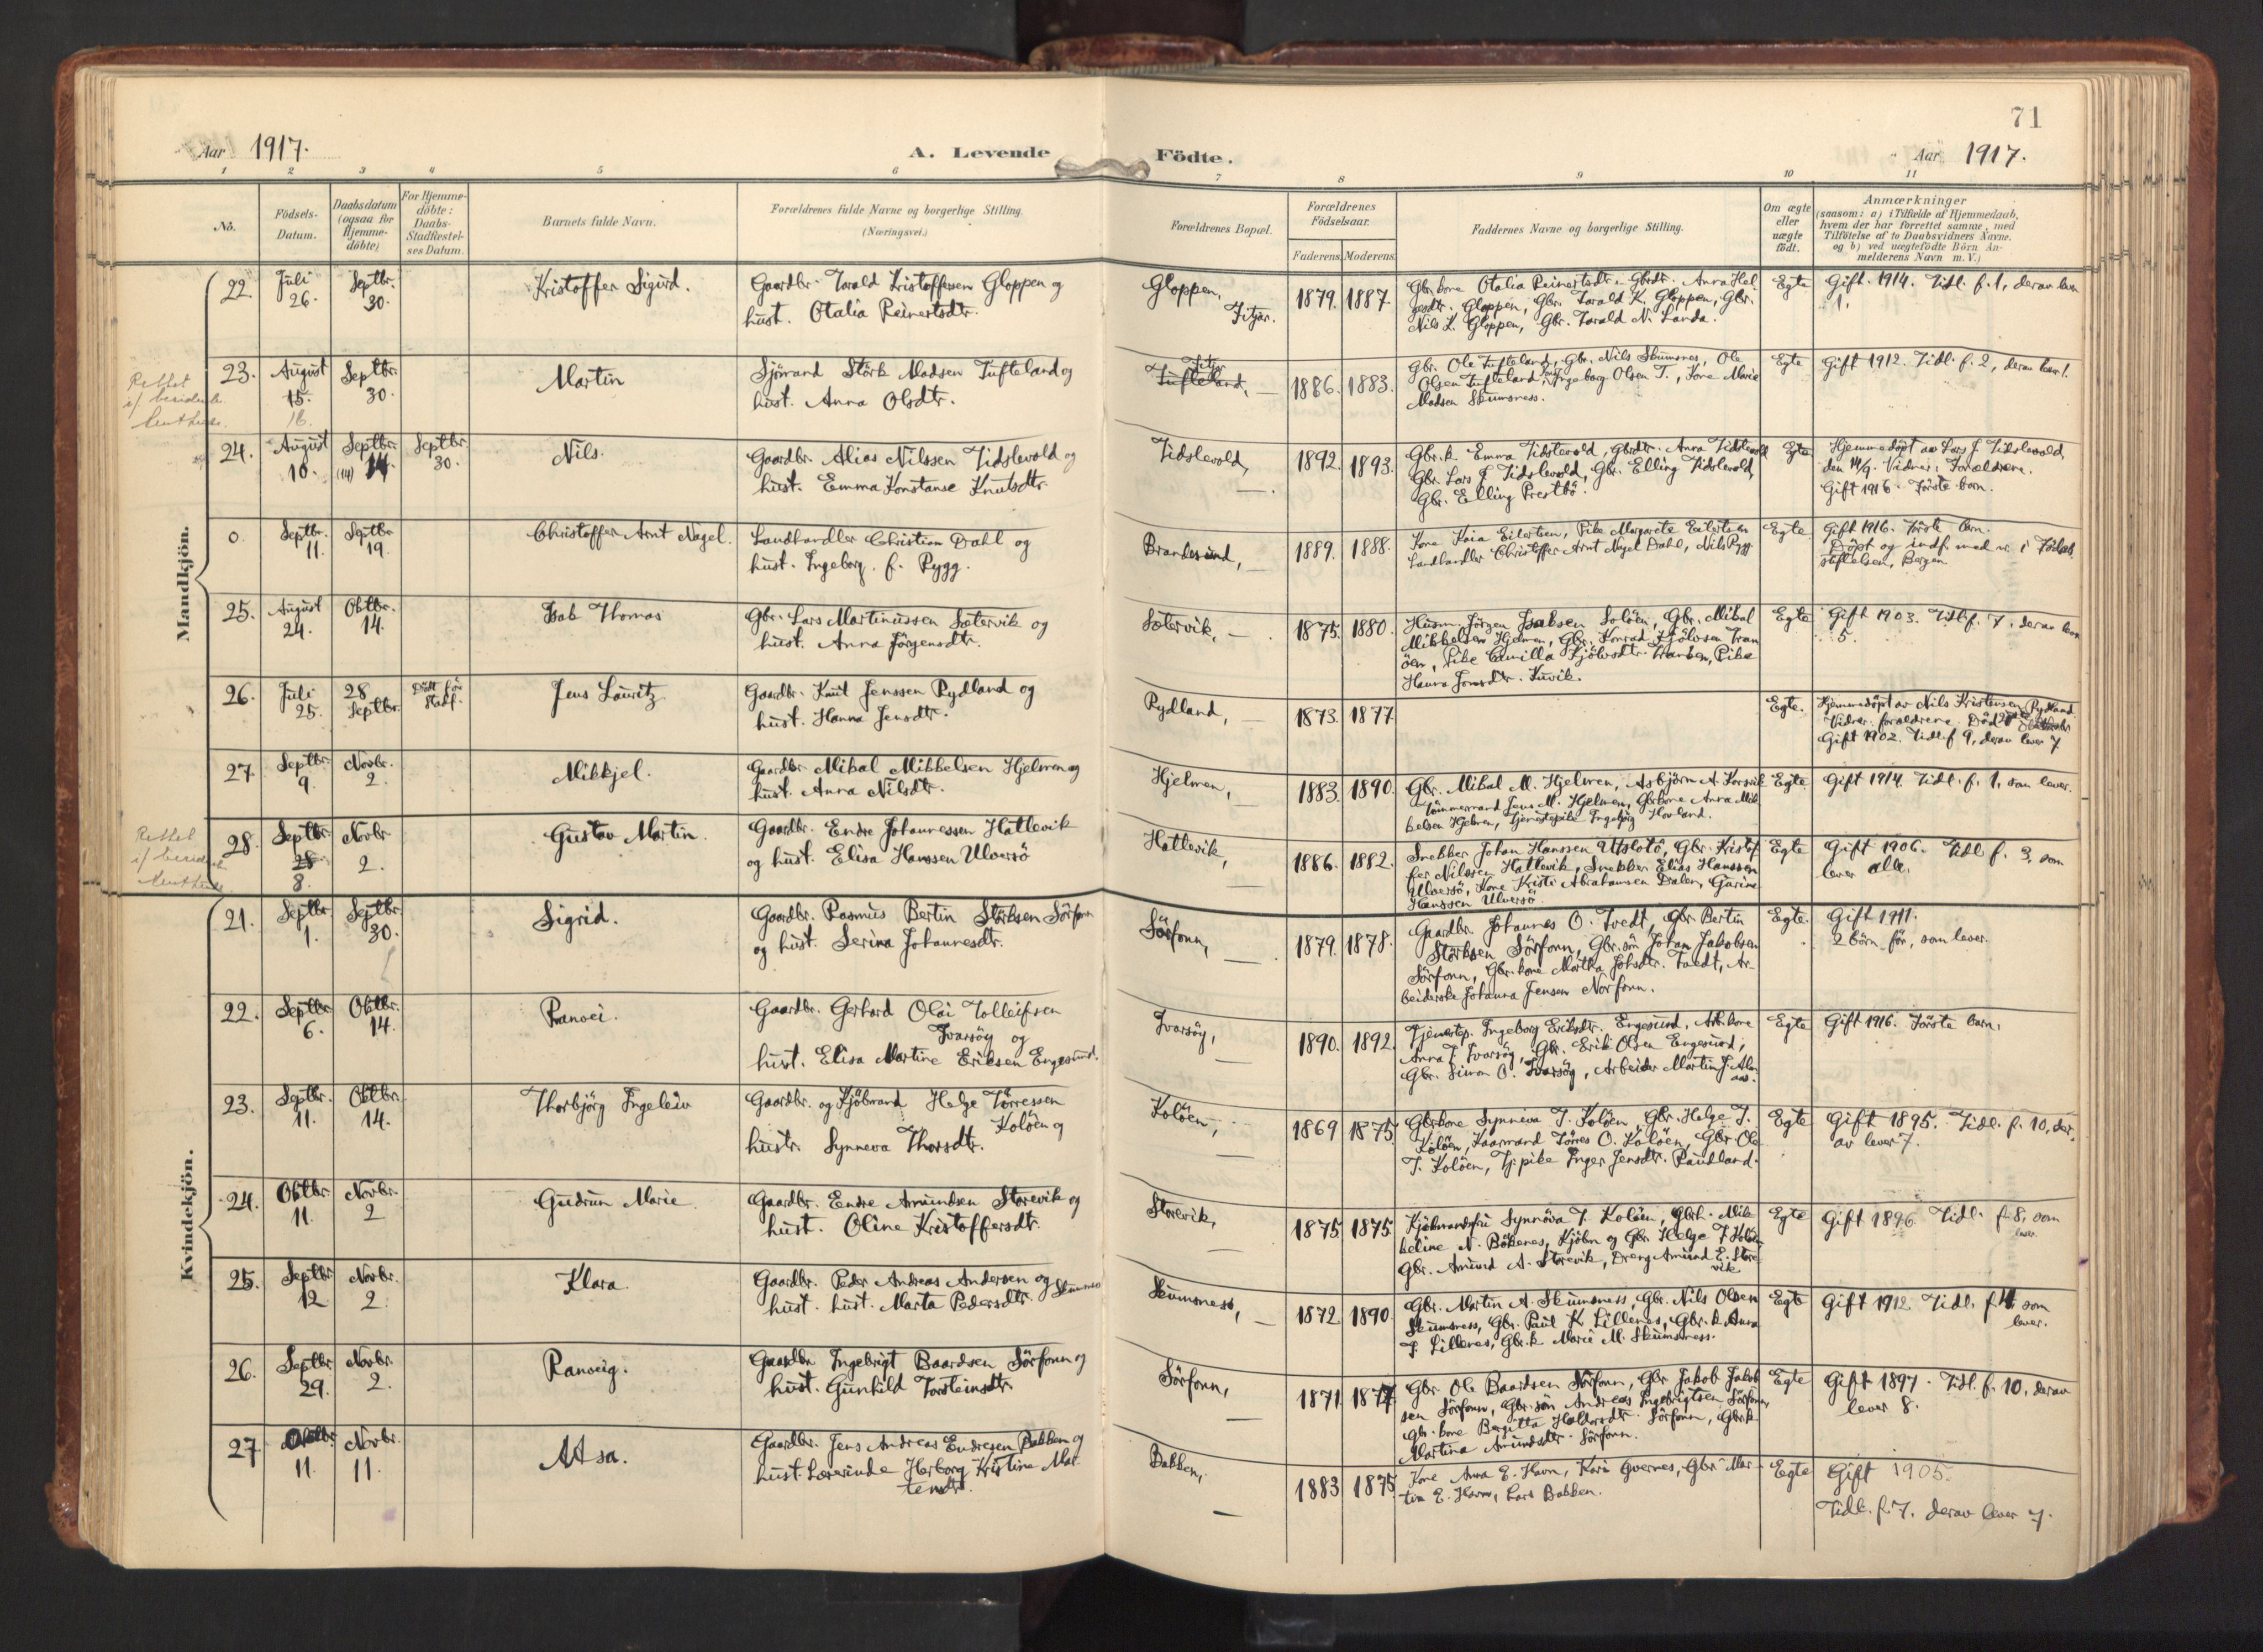 71
Aar 1917.
A. Levende Födte.
Aar 1917.
1 2 3 4 5 6 7 8 9 10 11
No.
Födsels-Datum.
Daabsdatum (ogsaa for Hjemme-döbte)
For Hjemme-döbte: Daabs-Stadfæstelses Datum.
Barnets fulde Navn.
Forældrenes fulde Navne og borgerlige Stilling.
(Næringsvei.)
Forældrenes Bopæl.
Forældrenes Födselsaar.
Faderens. Moderens.
Faddernes Navne og borgerlige Stilling.
Om ægte eller uægte födt.
Anmærkninger
(saasom: a) i Tilfælde af Hjemmedaab,
hvem der har forrettet samme, med
Tilföielse af to Daabsvidners Navne.
og b) ved uægtefödte Börn An-
melderens Navn m. V.)
Mandkjön.
22. Juli 26. Septbr. 30. Kristoffer Sigurd.
Gaardbr. Torald Kristoffersen Gloppen og
hust. Otalia Reinertsdtr.
Gloppen, Fitjar.
1879. 1887.
Gbr.kone Otalia Reinertsdtr. Gbrdtr. Anna Hel
gesdtr. Gloppen, Gbr. Torald K. Gloppen, Gbr.
Nils K. Gloppen, Gbr. Torald N. Landa.
Egte
Gift 1914. Tidl. f. 1, derav lever
1.
Rettet
23. August 15. 16. Septbr. 30. Martin
Sjömand Störk Madsen Tufteland og
hust. Anna Olsdtr.
Tufteland,
1886. 1883.
Gbr. Ole Tufteland, Gbr. Nils Skumsnes, Ole
Olsen Tufteland, Ingeborg Olsen T., Kone Marie
Madsen Skumsness.
Egte
Gift 1912. Tidl. f. 2, derav lever 1.
24. August 10. Septbr. (14) 14. Septbr. 30. Nils.
Gaardbr. Alias Nilssen Tidslevold og
hust. Emma Konstanse Knutsdtr.
Tidslevold,
1892. 1893.
Gbr.k. Emma Tidslevold, Gbrdtr. Anna Tidslevold
Gbr. Lars J. Tidslevold, Gbr. Elling Tidslevold,
Gbr. Elling Prestbö.
Egte
Hjemmedöpt av Lars J. Tidslevold,
den 14/9. Vidner: Forældrene.
Gift 1916. Förste barn.
0. Septbr. 11. Septbr. 19. Christoffer Arnt Nagel.
Landhandler Christian Dahl og
hust. Ingeborg. f. Rygg.
Brandesund,
1889. 1888.
Kone Kaia Eilertsen, Pike Margarete Eilertsen
Landhandler Christoffer Arnt Nagel Dahl, Nils Rygg.
Egte
Gift 1916. Förste barn.
Döpt og indf. med nr. i Födsels
stiftelsen, Bergen
25. August 24. Oktbr. 14. Isak Thomas
Gbr. Lars Martinussen Sætervik og
hust. Anna Jörgensdtr.
Sætervik,
1875. 1880.
Husm. Jörgen Isaksen Solöen, Gbr. Mikal
Mikkelsen Hjelmen, Gbr. Konrad Kjölvsen Tran
öen, Pike Camilla Kjölvsdtr. Tranöen, Pike
Hanna Jonsdtr.
Egte
Gift 1903. Tidl. f. 7, derav lever
5.
26. Juli 25. 28 Septbr. Död för Stadf. Jens Lauritz
Gaardbr. Knut Jenssen Rydland og
hust. Hanna Jensdtr.
Rydland,
1873. 1877
Egte.
Hjemmedöpt av Nils Kristensen Rydland
Vidner: forældrene. Död
Gift 1902. Tidl. f. 9, derav lever 7
27. Septbr. 9. Novbr. 2. Mikkjel.
Gaardbr. Mikal Mikkelsen Hjelmen og
hust. Anna Nilsdtr.
Hjelmen,
1883. 1890.
Gbr. Mikal M. Hjelmen, Asbjörn A. Korsvik
Tömmermand Jens M. Hjelmen, Gbrkone Anna Mik
kelsen Hjelmen, Tjenestepike Ingebjörg Hovland.
Egte
Gift 1914. Tidl. f. 1, som lever.
Rettet
28. Septbr. 28 8. Novbr. 2. Gustav Martin.
Gaardbr. Endre Johannessen Hatlevik
og hust. Elisa Hanssen Ulversö
Hatlevik,
1886. 1882.
Snekker Johan Hanssen Utslotö, Gbr. Kristof
fer Nilssen Hatlevik, Snekker Elias Hanssen
Ulversö, Kone Kristi Abrahamsen Dalen, Gurine
Hanssen Ulversö.
Egte
Gift 1906. Tidl. f. 3, som
lever alle.
Kvindekjön.
21. Septbr. 1. Septbr. 30. Sigrid.
Gaardbr. Rasmus Bertin Störksen Sörfonn
og hust. Serina Johannesdtr.
Sörfonn,
1879. 1878.
Gaardbr. Johannes O. Tvedt, Gbr. Bertin
Störksen Sörfonn, Gbr. sön Johan Jakobsen
Sörfonn, Gbr. kone Martha Johsdtr. Tvedt, Ar-
beiderske Johanna Jensen Norfonn.
Egte.
Gift 1911.
2 börn för, som lever.
22. Septbr. 6. Oktbr. 14. Ranvei.
Gaardbr. Gerhard Olai Tolleifsen
Ivarsöy og
hust. Elisa Martine Eriksen Engesund.
Ivarsöy,
1890. 1892.
Tjenestep. Ingeborg Eriksdtr. Engesund, Arb.kone
Anna T. Ivarsöy, Gbr. Erik Olsen Engesund,
Gbr. Simon O. Ivarsöy, Arbeider Martin J. Alm
aas.
Egte
Gift 1916. Förste barn.
23. Septbr. 11. Oktbr. 14. Thorbjörg Ingeleiv
Gaardbr. og Kjöbmand Helge Törressen
Kolöen og
hustr. Synneva Thorsdtr.
Kolöen,
1869 1875
Gbrkone Synneva T. Kolöen, Gbr. Helge T.
Kolöen, Kaarmand Törres O. Kolöen, Gbr. Ole
T. Kolöen, Tj.pike Inger Jensdtr. Raudland.
Egte
Gift 1895. Tidl. f. 10, der-
av lever 7.
24. Oktbr. 11. Novbr. 2 Gudrun Marie
Gaardbr. Endre Amundsen Storevik og
hust. Oline Kristoffersdtr.
Storevik,
1875 1875
Kjöbmandsfru Synnöva T. Kolöen, Gbrh. Mik
keline N. Bökenes, Kjöbm og Gbr. Helge T. Kolöen
Gbr. Amund A. Storevik, Dreng Amund E. Store
vik
Egte
Gift 1896. Tidl. f. 8, som
lever.
25. Septbr. 12 Novbr. 2. Klara.
Gaardbr. Peder Andreas Andersen og
hust. hust. Marta Pedersdtr. Skumsnes
Skumsness,
1872. 1890.
Gbr. Martin A. Skumsness, Gbr. Nils Olsen
Skumsness, Gbr. Paul K. Lillenes, Gbr. k. Anna
J. Lillenes, Gbr. k Marie M. Skumsness.
Egte
Gift 1912. Tidl. f. 4 som
lever.
26. Septbr. 29. Novbr. 2. Ranveig.
Gaardbr. Ingebrigt Baardsen Sörfonn og
hust. Gunhild Torsteinsdtr
Sörfonn,
1871 1877
Gbr. Ole Baardsen Sörfonn, Gbr Jakob Jakob
sen Sörfonn, Gbr. sön Andreas Ingebrigtsen Sörfonn,
Gbr. kone Bergitta Haldorsdtr. Sörfonn, Gbr.k.
Martina Amundsdtr. Sörfonn.
Egte
Gift 1897. Tidl. f. 10, derav
lever 8.
27 Oktbr. 11. Novbr. 11. Aasa.
Gaardbr. Jens Andreas Endresen Bakken og
hust. Lærerinde Herborg Kristine Mar
tensdtr.
Bakken,
1883 1875
Kone Anna E. Havn, Kari Gvernes, Gbr. Mar-
tin E. Havn, Lars Bakken.
Egte
Gift 1905.
Tidl. f. 7, derav lever 7.